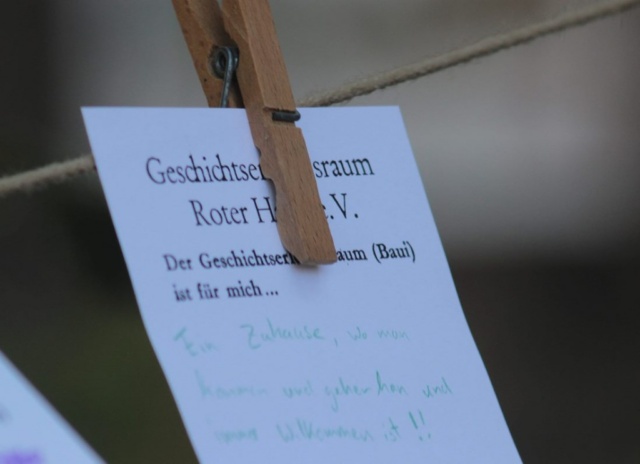 Geschichtser sraum
Roter H e.V.
Der Geschichtserk aum (Baui)
ist für mich...
Ein Zuhause, wo man
kommen und gehen kan und
immer Willkommen ist!!